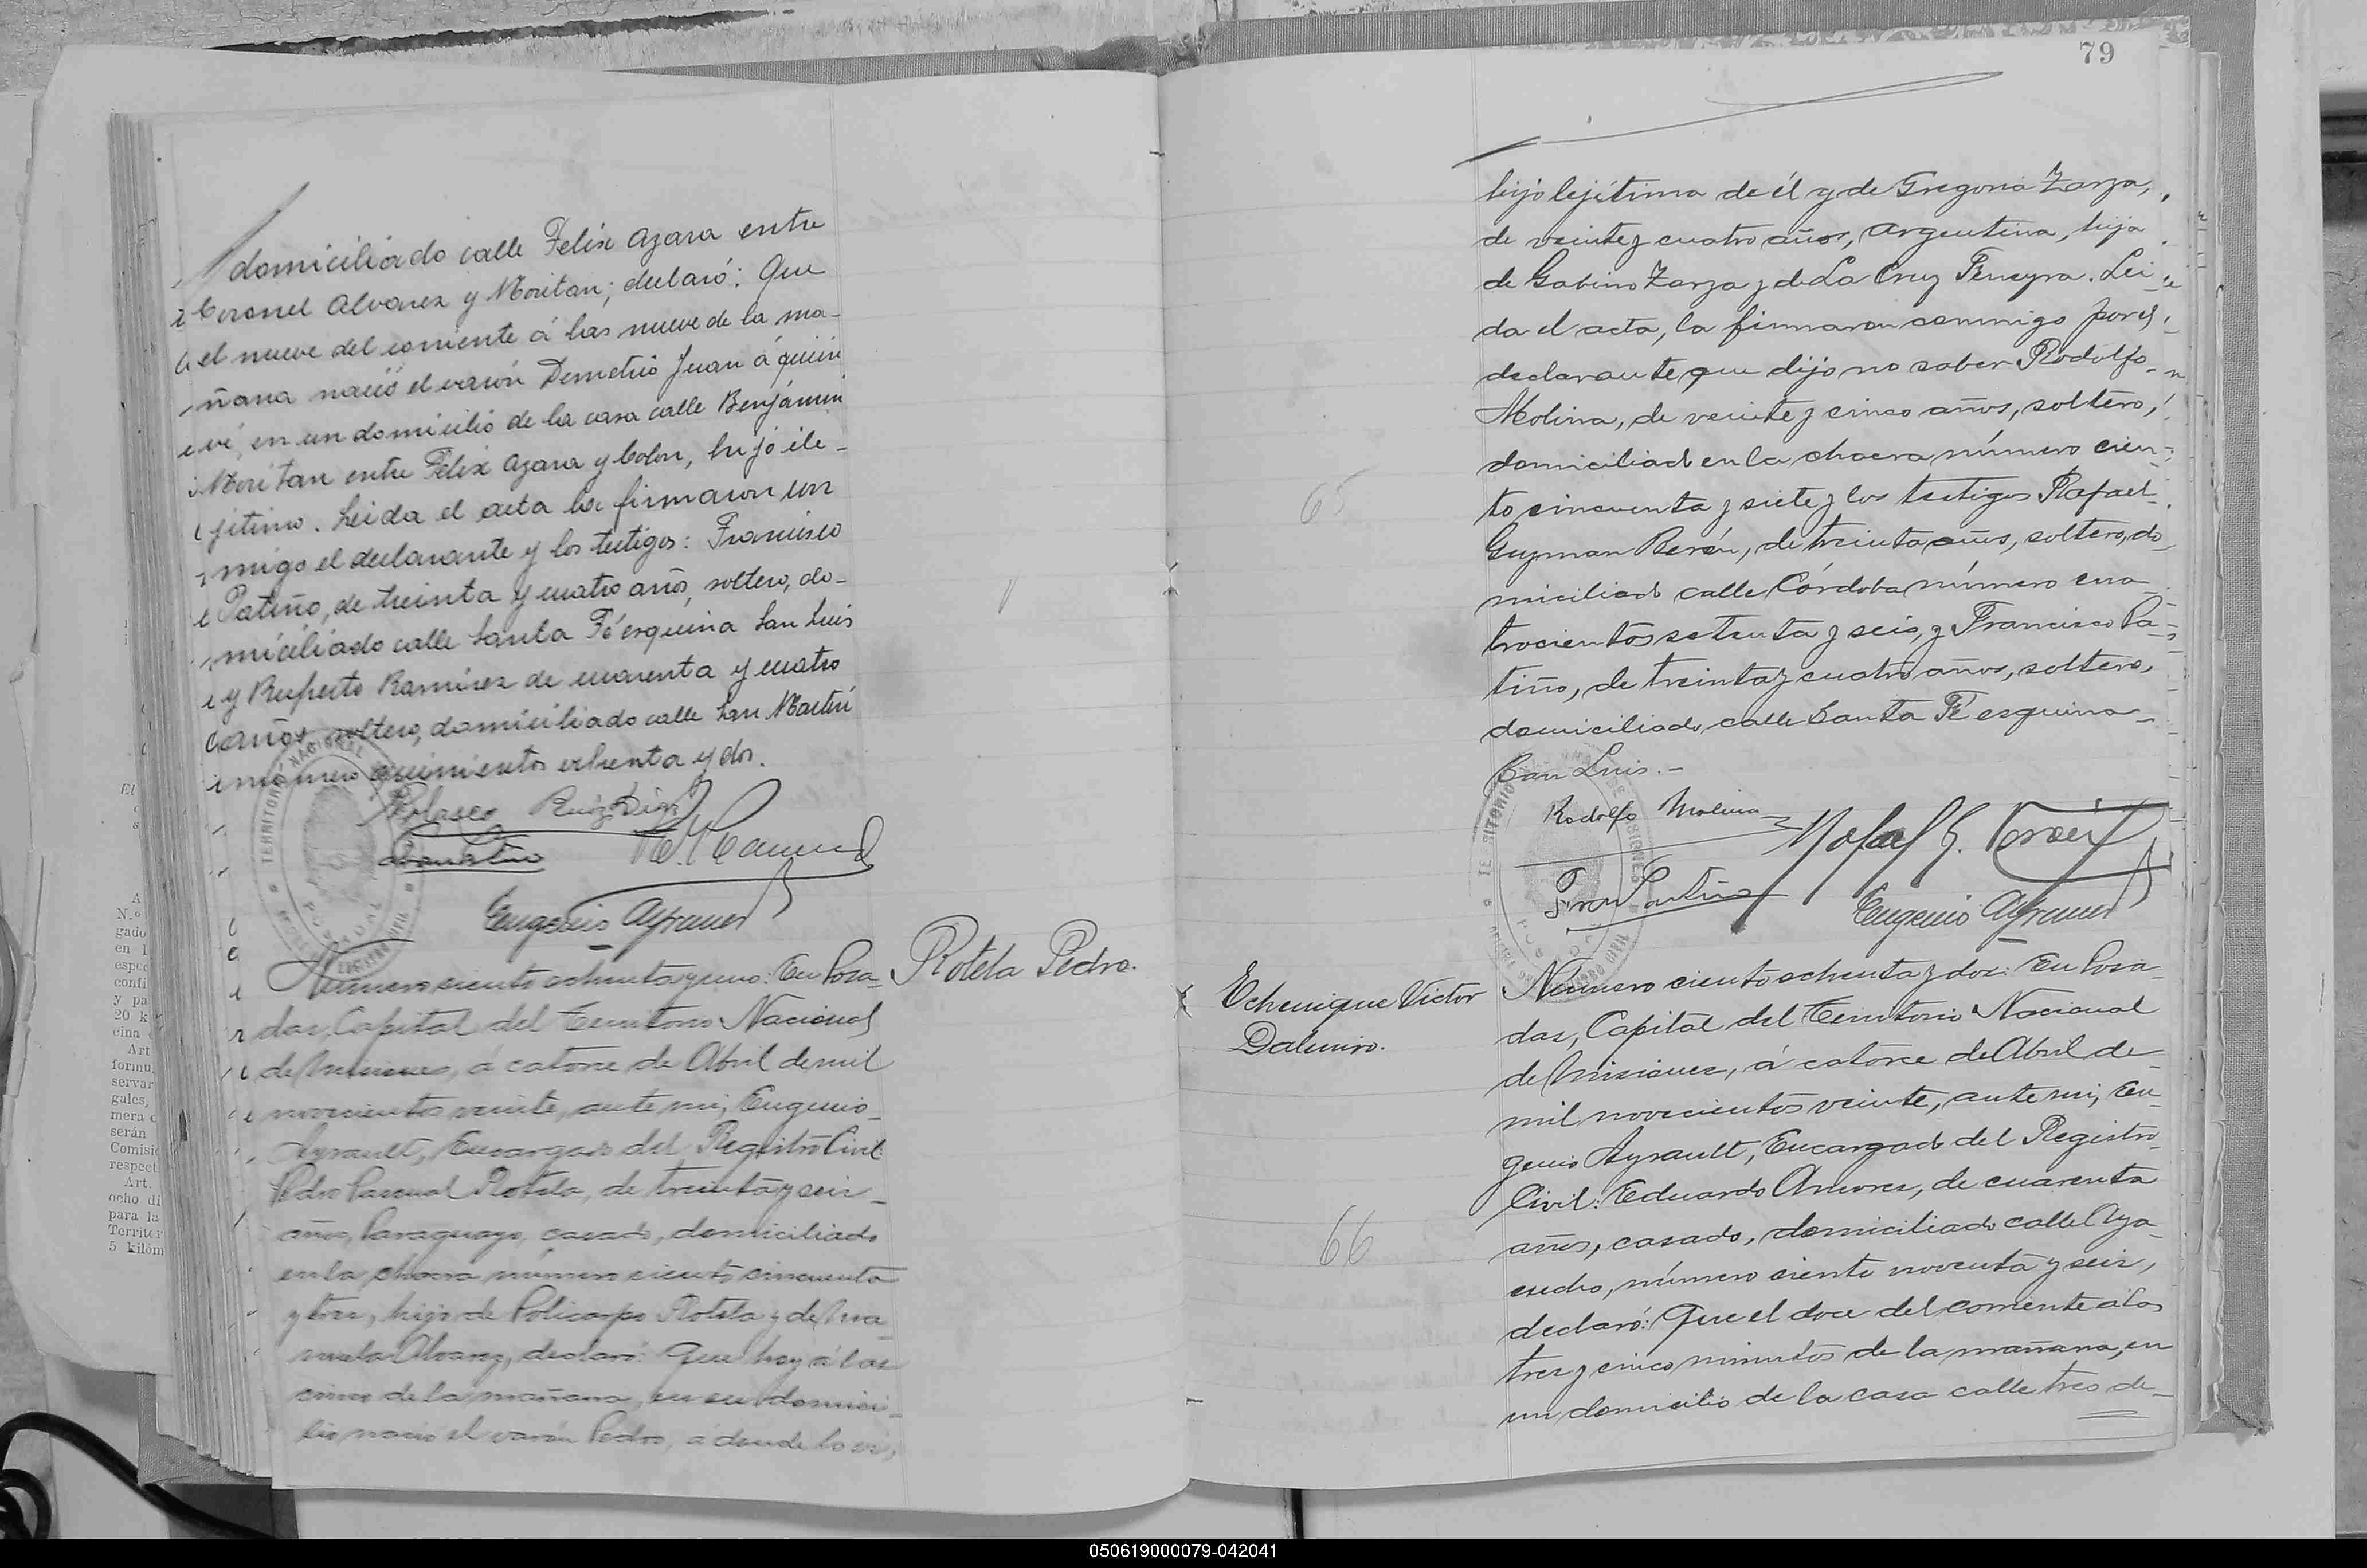 domiciliado calle Felix Azara entre
Coronel Alvarez y Moritan; declaró: Que
el nueve del corriente á las nueve de la ma-
ñana nació el varón Demetrio Juan á quien
ví, en un domicilio de la casa calle Benjámin
Moritan entre Felix Azara y Colon, hijo ile-
jitimo. Leida el acta la firmaron con
migo el declarante y los testigos: Francisco
Patiño, de treinta y cuatro años, soltero, do-
miciliado calle Santa Fé esquina San Luis
y Ruperto Ramirez de cuarenta y cuatro
años, soltero, domiciliado calle San Martin
número quinientos ochenta y dos.
Ruiz Diaz
Eugenio Ayrault
Número ciento ochenta y uno: En Posa-
Rotela Pedro.
das, Capital del Territorio Nacional
de Misiones, á catorce de Abril de mil
novecientos veinte, ante mi, Eugenio
Ayrault, Encargado del Registro Civil:
Pedro Pascual Rotela, de treinta y seis
años, Paraguayo, casado, domiciliado
en la chacra número ciento cincuenta
y tres, hijo de Policarpo Rotela y de Ma-
nuela Alvarez, declaró: Que hoy á las
cinco de la mañana, en su domici-
lio nació el varón Pedro, á donde lo ví,
79
hijo lejítima de él y de Gregoria Zarza,
de veinte y cuatro años, Argentina, hija
de Gabino Zarza y de La Cruz Ferreyra. Lei-
da el acta, la firmaron conmigo por el
declarante que dijo no saber Rodolfo
Molina, de veinte y cinco años, soltero,
domiciliado en la chacra número cien-
to cincuenta y siete y los testigos Rafael
Guzman Berón, de treinta años, soltero, do-
miciliado calle Córdoba número cua-
trocientos setenta y seis, y Francisco Pa-
tiño, de treinta y cuatro años, soltero,
domiciliado, calle Santa Fé esquina
San Luis.-
65
Rodolfo Molina
Rafael G.
Fran Patiño
Eugenio Ayrault
Echenique Victor
Dalmiro.
Número ciento ochenta y dos: En Posa-
das, Capital del Territorio Nacional
de Misiones, á catorce de Abril de
mil novecientos veinte, ante mi, Eu-
genio Ayrault, Encargado del Registro
Civil: Eduardo Amores, de cuarenta
años, casado, domiciliado calle Aya-
cucho, número ciento noventa y seis,
declaró: Que el doce del corriente á las
tres y cinco minutos de la mañana, en
un domicilio de la casa calle tres de
66
050619000079-042041